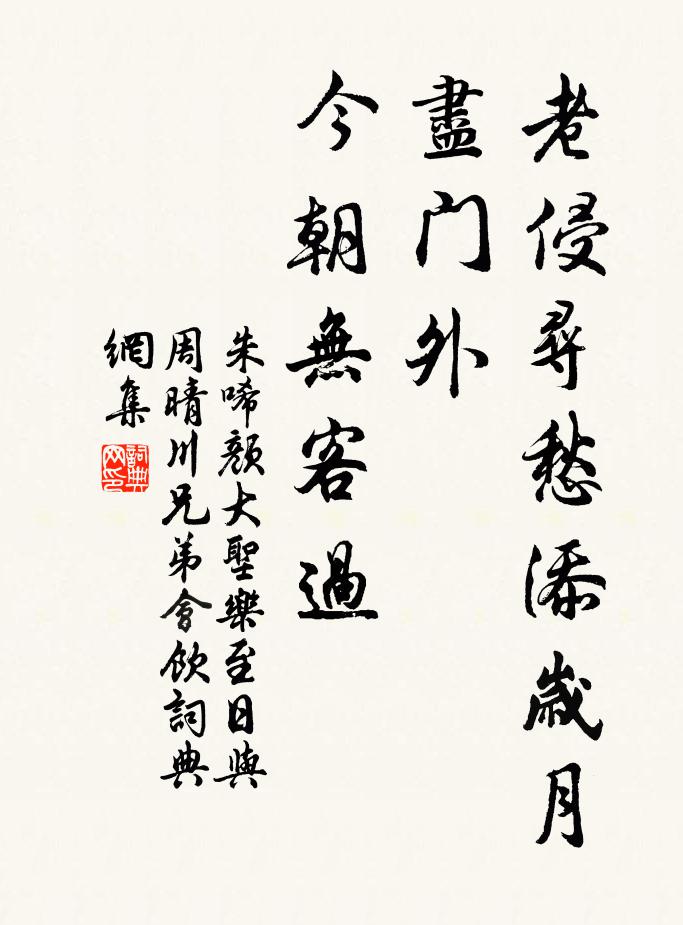 老侵尋愁添歲月
盡門外
今朝無客過
朱晞顏大聖樂至日與
周晴川兄弟會飲詞典
網集
詞典网印